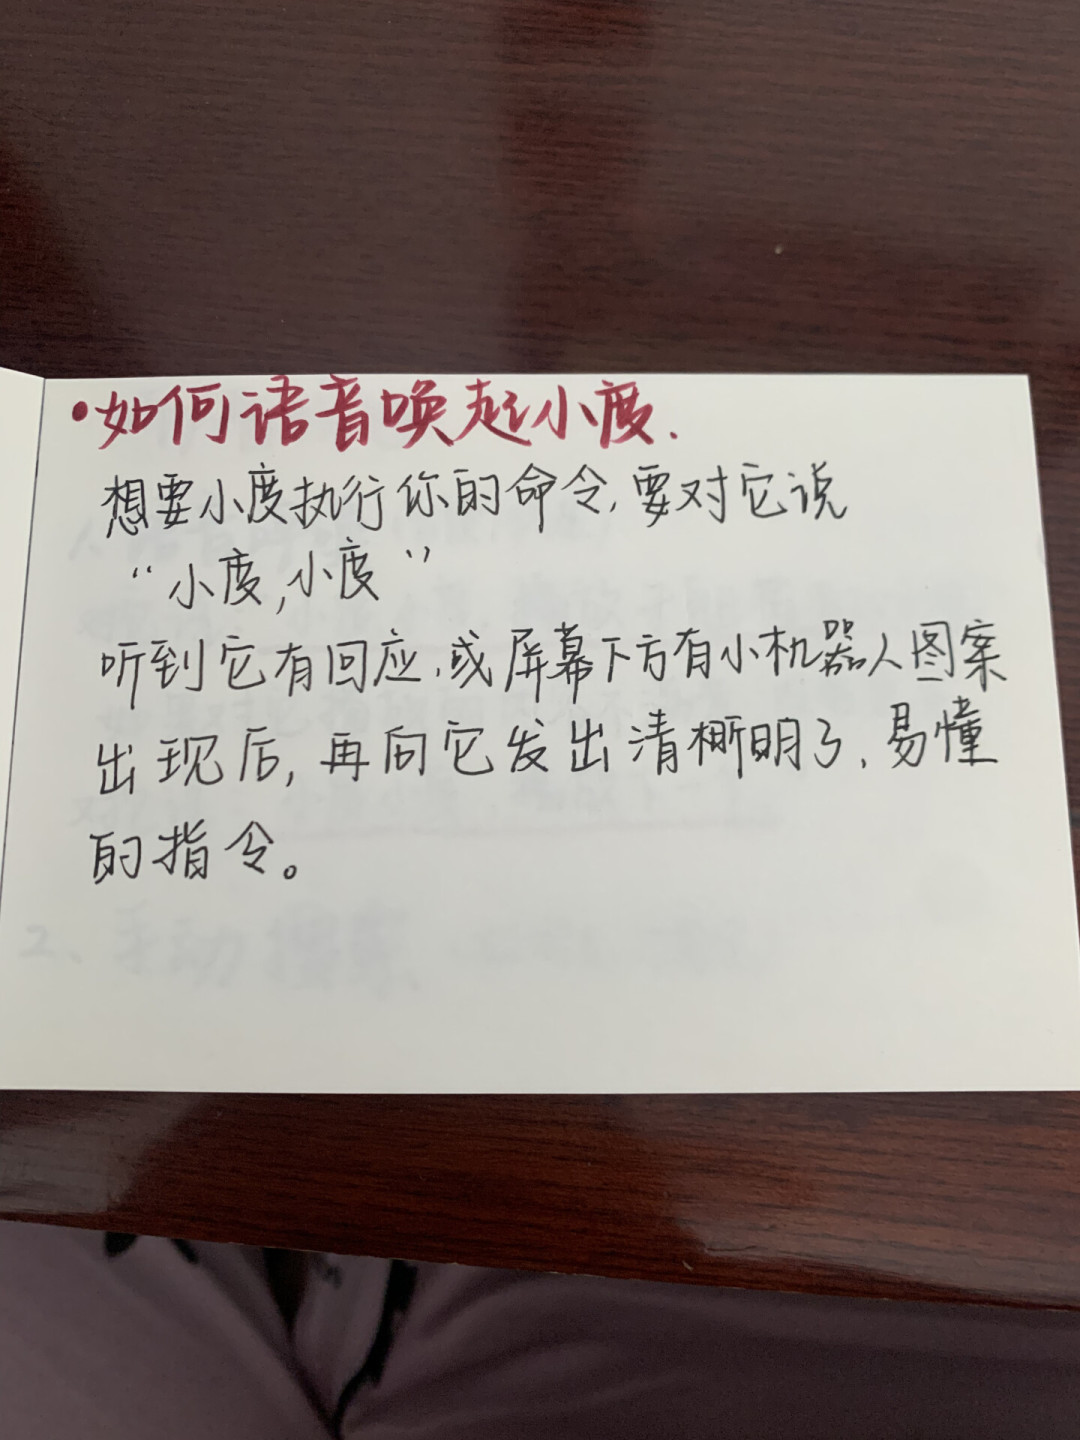 •如何语音唤起小度.
想要小度执行你的命令,要对它说
“小度,小度”
听到它有回应,或屏幕下方有小机器人图案
出现后,再向它发出清晰明了,易懂
的指令。
2、手动搜索